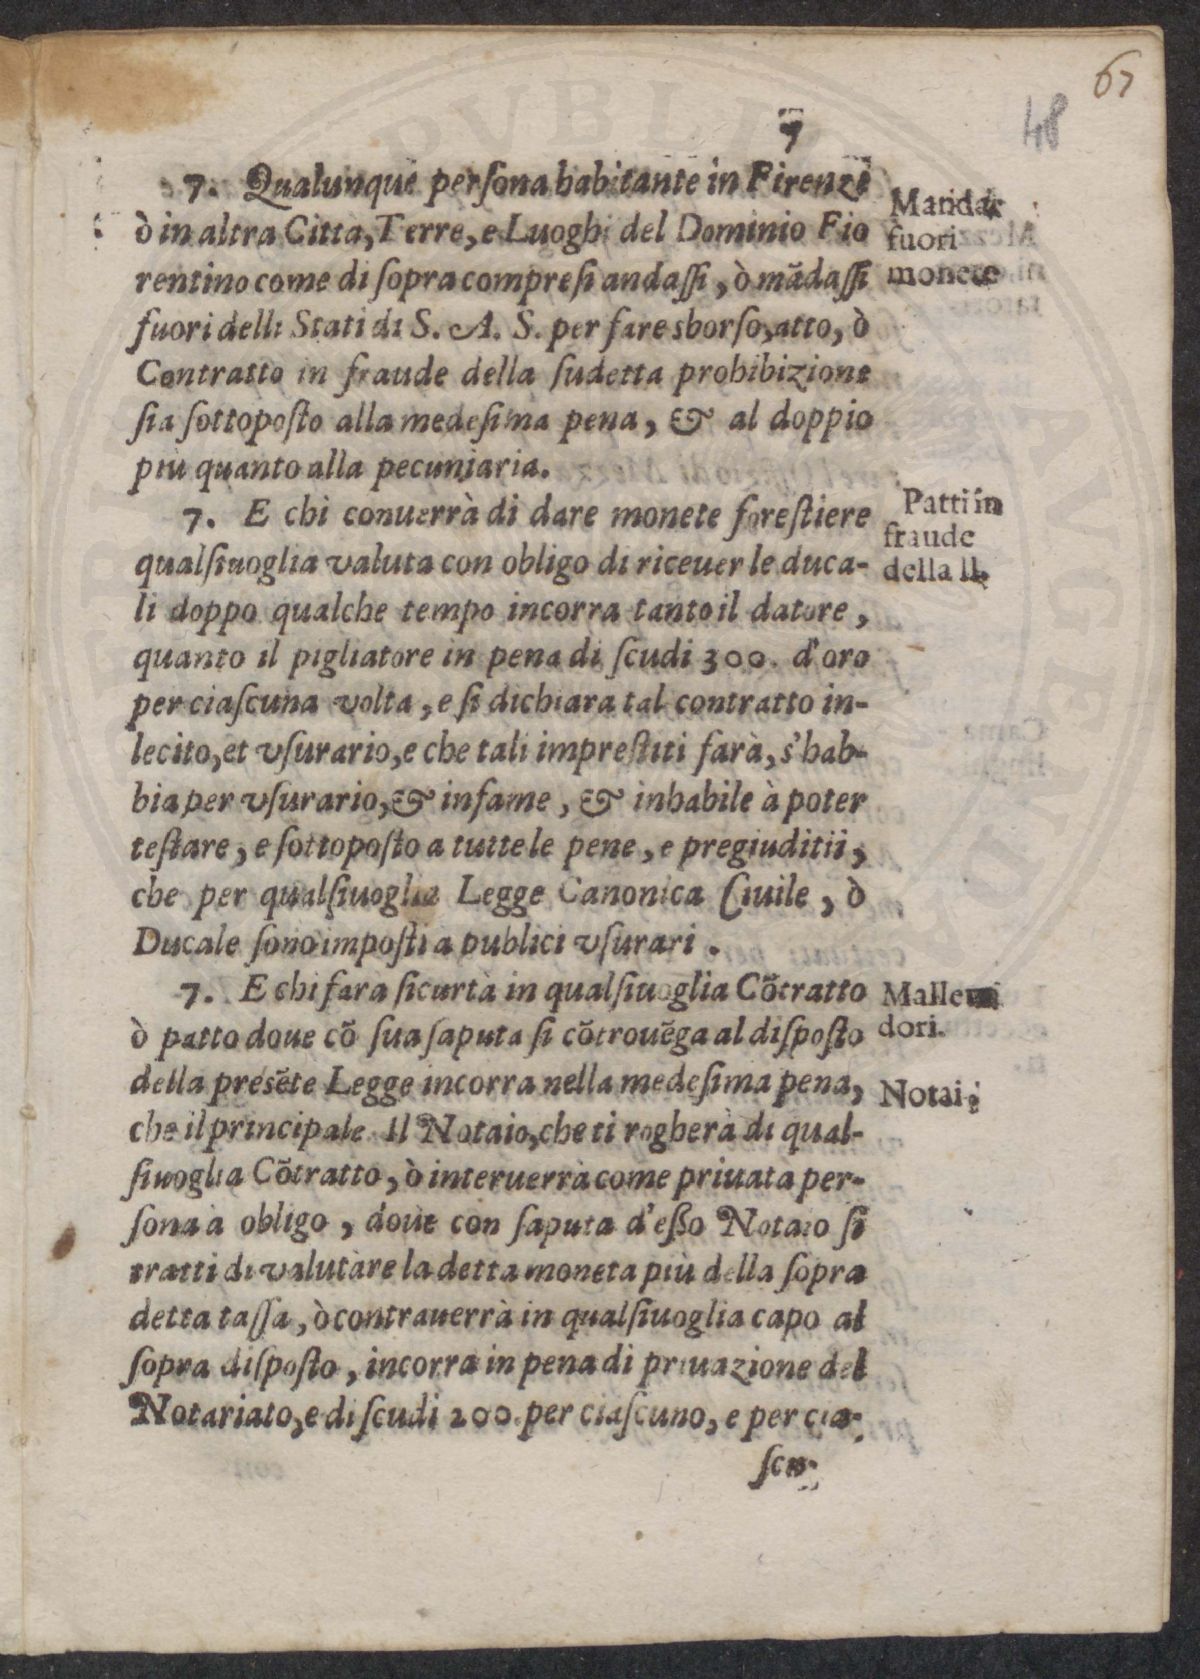 67
48
7
7. Qualunque persona habitante in Firenze
ò in altra Città, Terre, e Luoghi del Dominio Fio
rentino come di sopra compresi andassi, ò mãdassi
fuori delli Stati di S. A. S. per fare sborso, atto, ò
Contratto in fraude della sudetta prohibizione
sia sottoposto alla medesima pena, & al doppio
più quanto alla pecuniaria.
Mandar
fuori
monete
7. E chi conuerrà di dare monete forestiere
qualsiuoglia valuta con obligo di riceuer le duca-
li doppo qualche tempo incorra tanto il datore,
quanto il pigliatore in pena di scudi 300. d'oro
per ciascuna volta, e si dichiara tal contratto in-
lecito, et vsurario, e che tali imprestiti farà, s'hab-
bia per vsurario, & infame, & inhabile à poter
testare, e sottoposto a tutte le pene, e pregiuditii,
che per qualsiuoglia Legge Canonica Ciuile, ò
Ducale sono imposti a publici vsurari.
Patti in
fraude
della ll.
7. E chi fara sicurtà in qualsiuoglia Cõtratto
ò patto doue cõ sua saputa si cõtrouẽga al disposto
della presẽte Legge incorra nella medesima pena,
che il principale Il Notaio, che ti rogherà di qual-
siuoglia Cõtratto, ò interuerrà come priuata per-
sona à obligo, doue con saputa d'eßo Notaio si
tratti di valutare la detta moneta più della sopra
detta tassa, ò contrauerrà in qualsiuoglia capo al
sopra disposto, incorra in pena di priuazione del
Notariato, e di scudi 200. per ciascuno, e per cia-
Malleua
dori.
Notai.
scu-